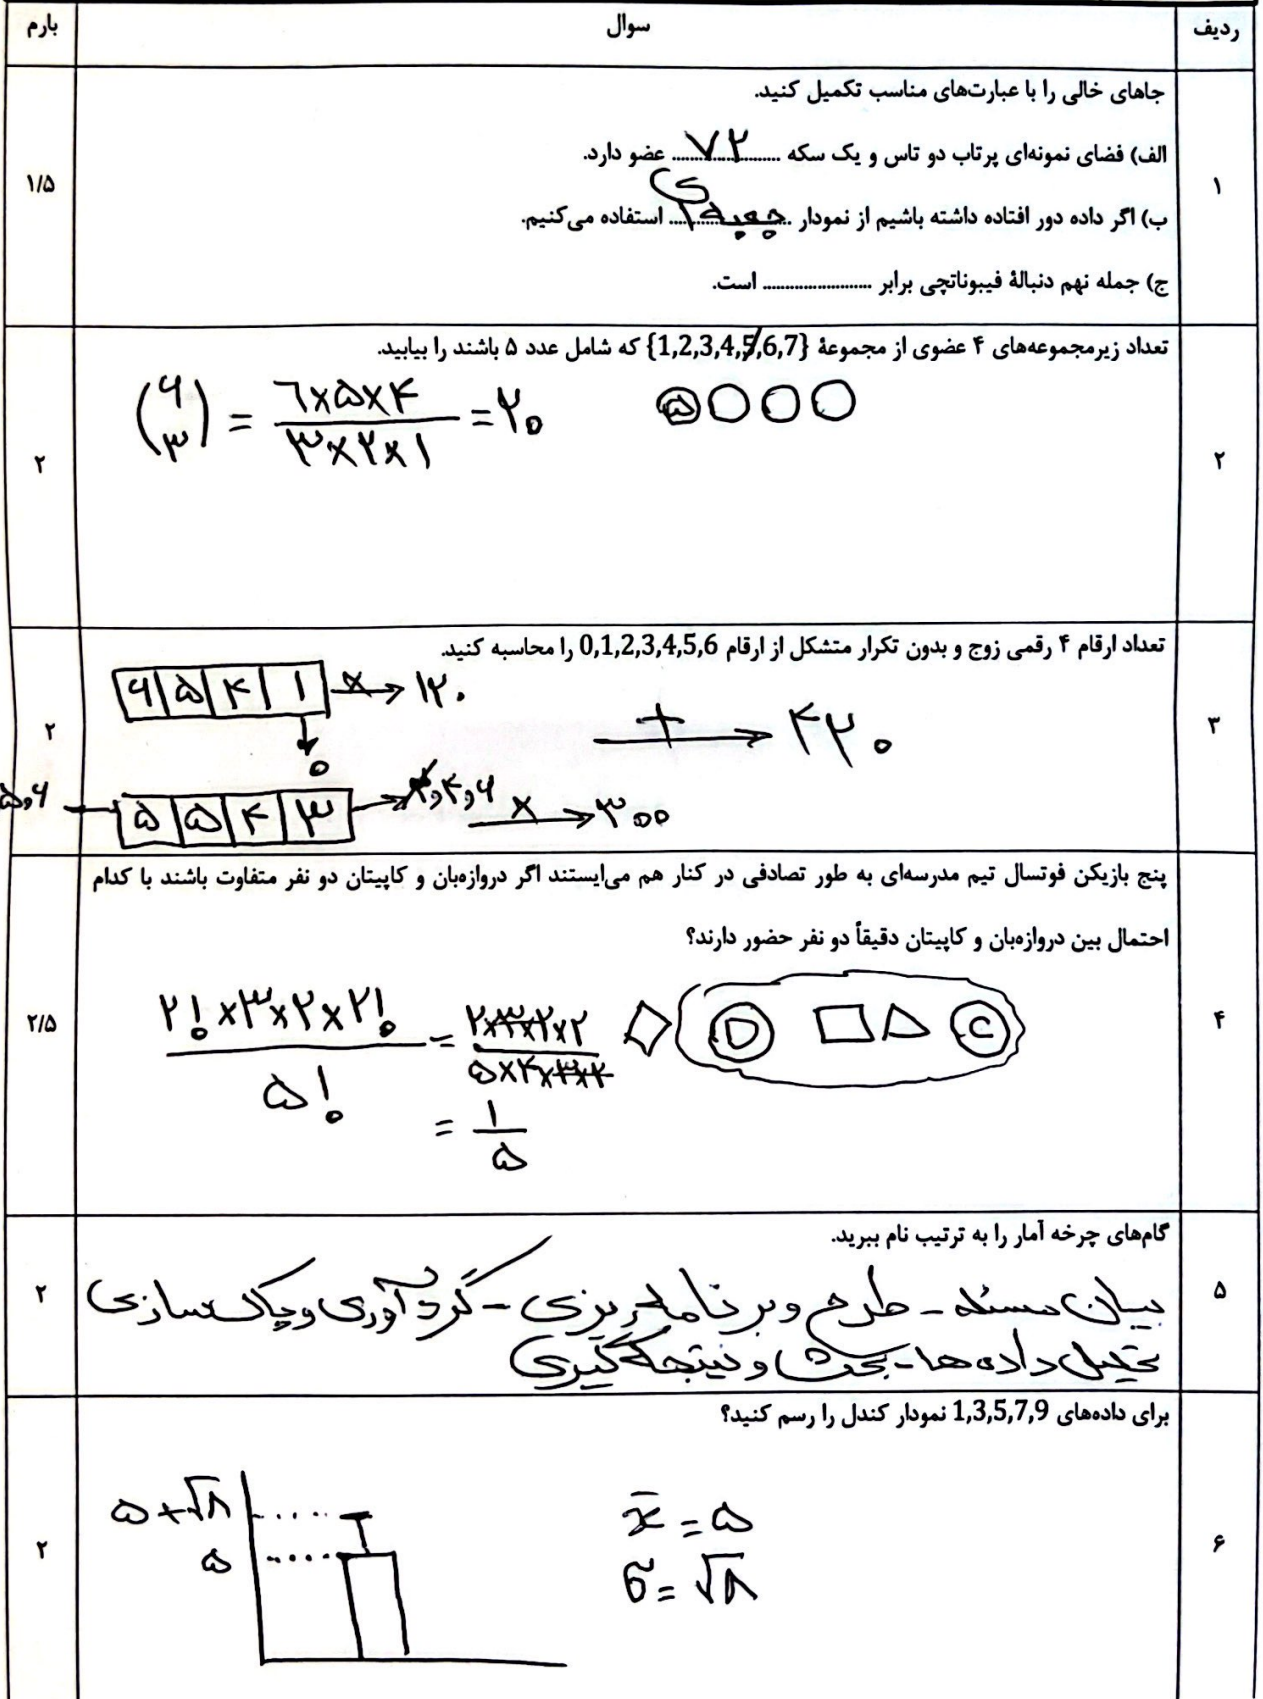 ردیف سوال بارم
جاهای خالی را با عبارت‌های مناسب تکمیل کنید.
الف) فضای نمونه‌ای پرتاب دو تاس و یک سکه ........۷۲........ عضو دارد.
۱ ۱/۵
ب) اگر داده دور افتاده داشته باشیم از نمودار ....جعبه‌ای.... استفاده می‌کنیم.
ج) جمله نهم دنبالهٔ فیبوناتچی برابر ........................ است.
تعداد زیرمجموعه‌های ۴ عضوی از مجموعهٔ {1,2,3,4,5,6,7} که شامل عدد ۵ باشند را بیابید.
(۶ ۳) = ۶×۵×۴ / ۳×۲×۱ = ۲۰ ۵
۲ ۲
تعداد ارقام ۴ رقمی زوج و بدون تکرار متشکل از ارقام 0,1,2,3,4,5,6 را محاسبه کنید.
۶ ۵ ۴ ۱ × → ۱۲۰
+ → ۴۲۰
۳ ۲
۰
۵ ۵ ۴ ۳ → ۲,۴,۶ × → ۳۰۰
پنج بازیکن فوتسال تیم مدرسه‌ای به طور تصادفی در کنار هم می‌ایستند اگر دروازه‌بان و کاپیتان دو نفر متفاوت باشند با کدام
احتمال بین دروازه‌بان و کاپیتان دقیقاً دو نفر حضور دارند؟
۲! × ۳ × ۲ × ۲! / ۵! = ۲×۳×۲×۲ / ۵×۴×۳×۲ D C
۴ ۲/۵
= ۱/۵
گام‌های چرخه آمار را به ترتیب نام ببرید.
بیان مسئله - طرح و برنامه‌ریزی - گردآوری و پاکسازی
۵ ۲
تحلیل داده‌ها - بحث و نتیجه‌گیری
برای داده‌های 1,3,5,7,9 نمودار کندل را رسم کنید؟
۵+√۸ x̄ = ۵
۶ ۲
۵ σ = √۸